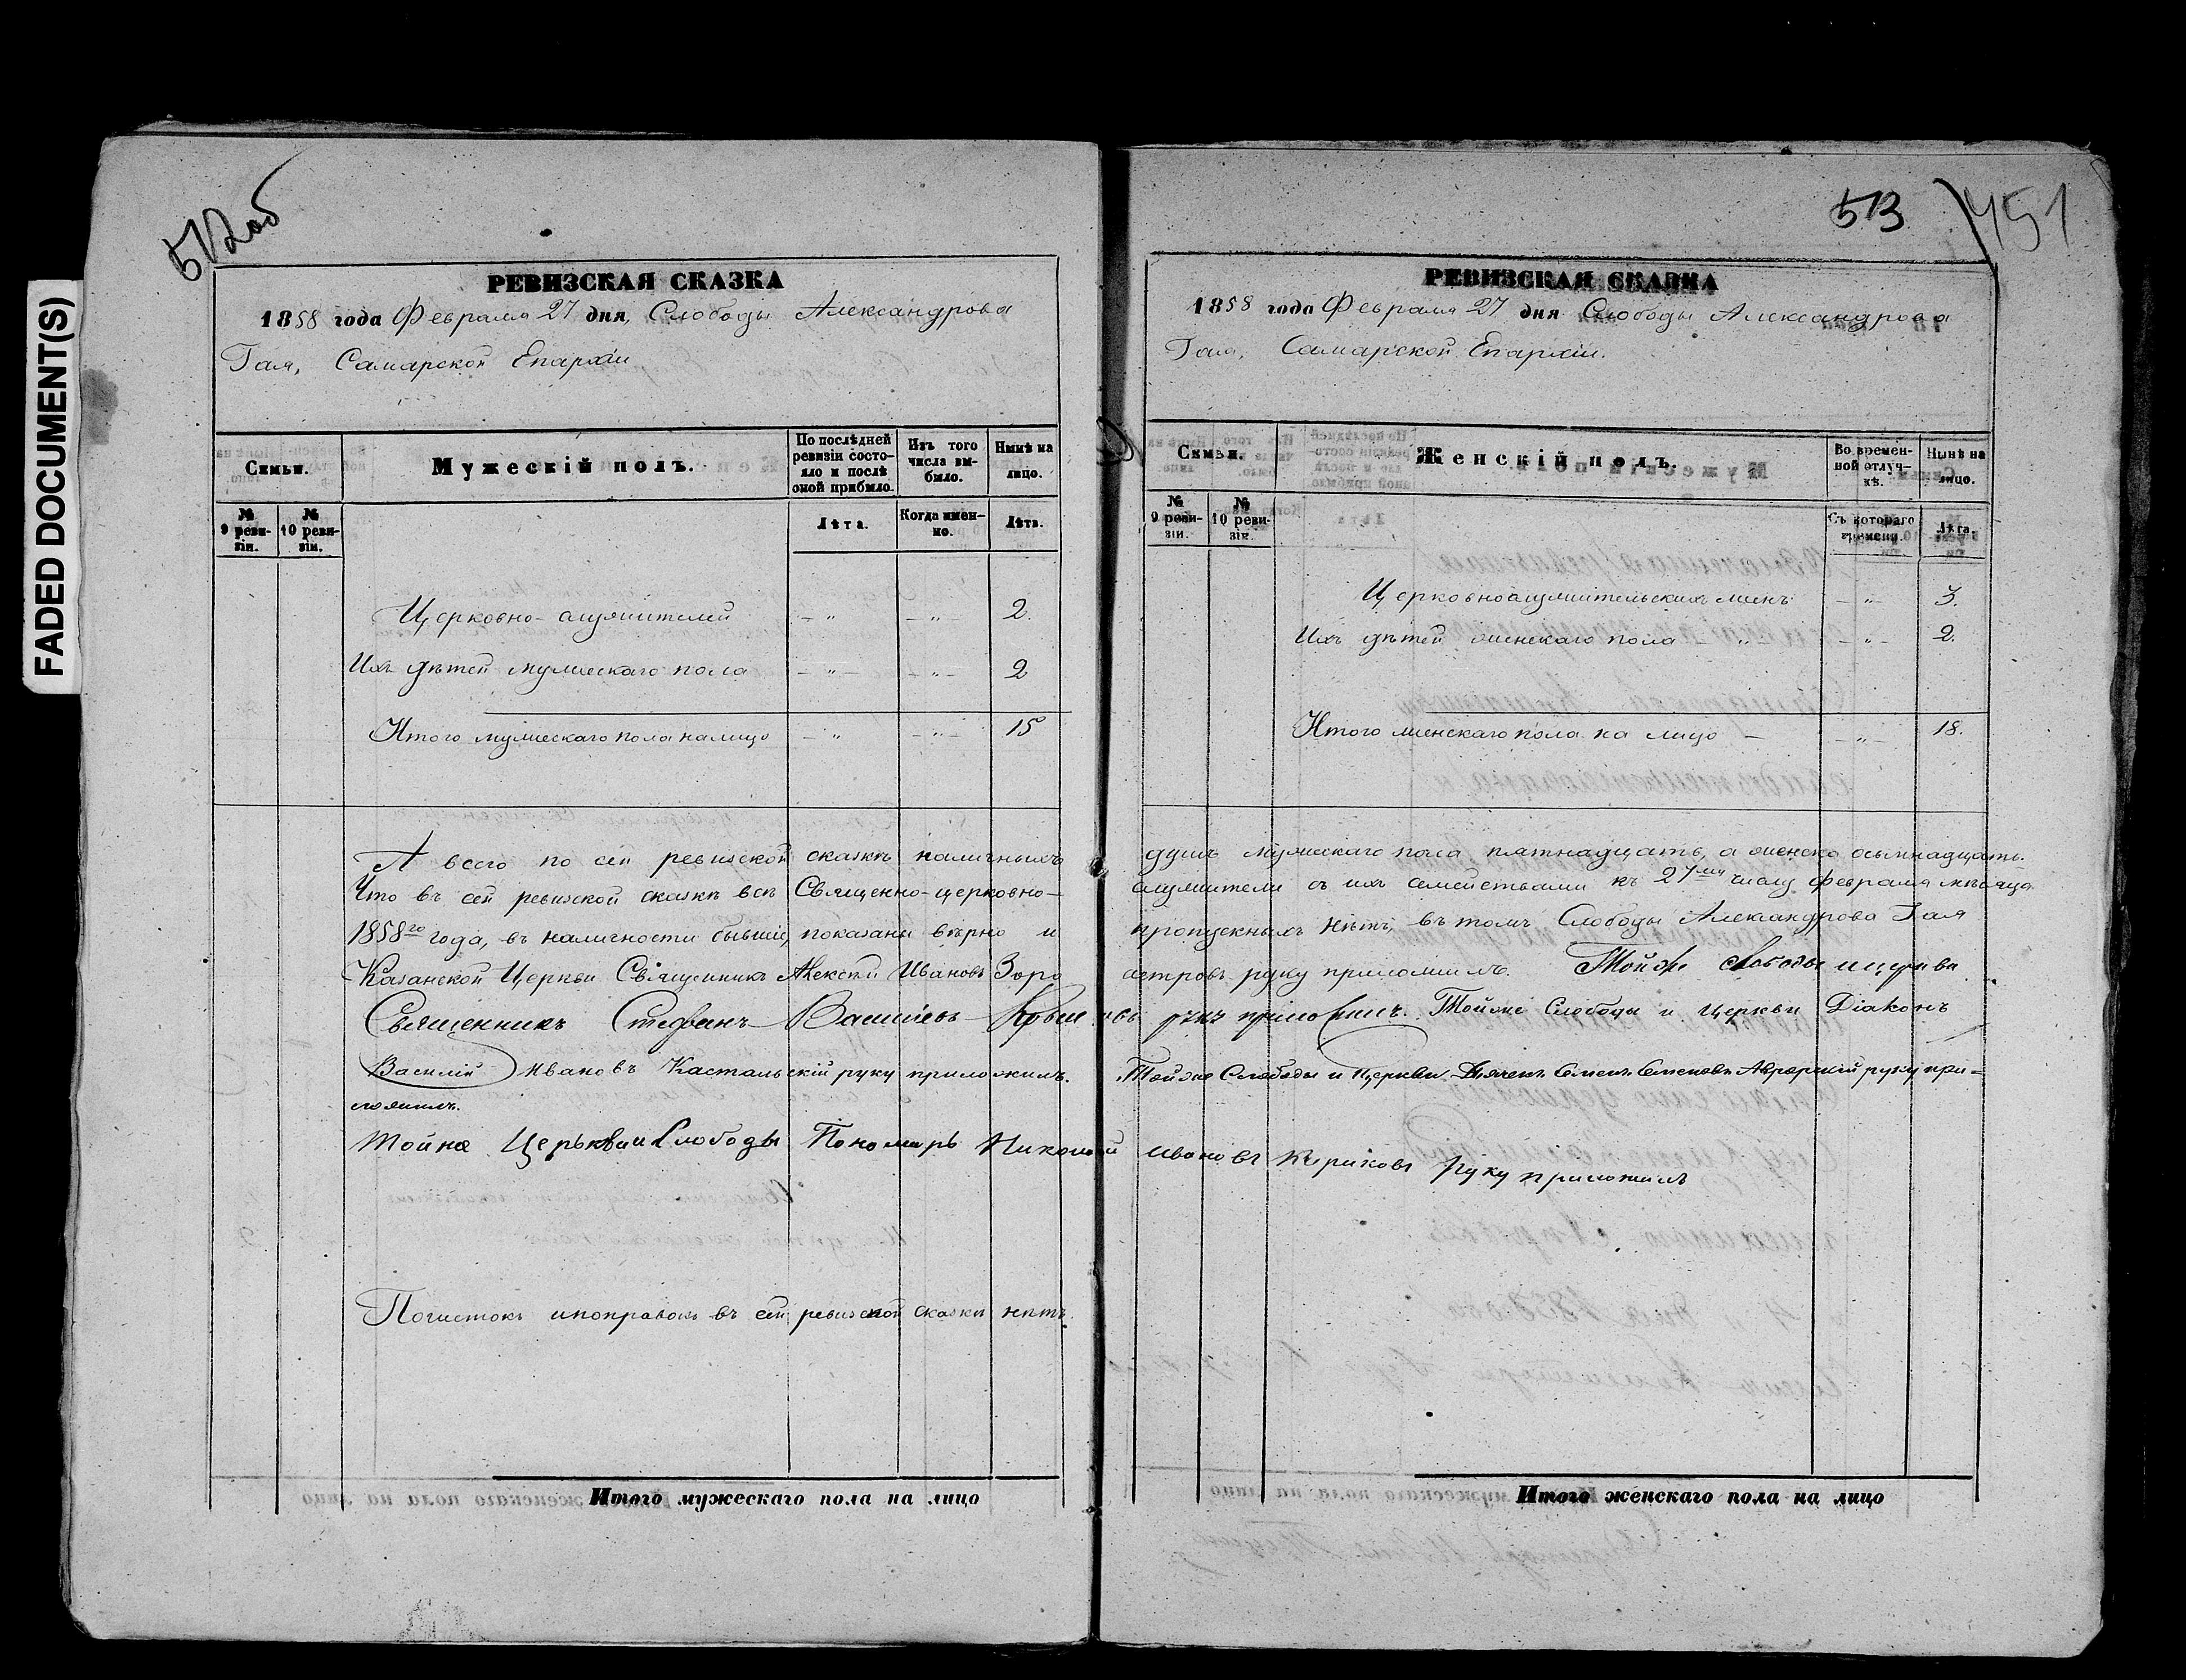 FADED DOCUMENT(S)
512об
РЕВИЗСКАЯ СКАЗКА
1858 года Февраля 27 дня, Слободы Александрова
Гая, Самарской Епархіи
Семьи.
Мужескій полъ.
По послѣдней ревизіи состояло и послѣ оной прибыло.
Изъ того числа выбыло.
Нынѣ на лицо.
№ 9 ревизіи.
№ 10 ревизіи.
Лѣта.
Когда именно.
Лѣта.
Церковно-служителей - „ - „ - 2.
Ихъ дѣтей мужескаго пола - „ - - „ - 2
Итого мужескаго пола на лицо - „ - „ - 15
513
451
РЕВИЗСКАЯ СКАЗКА
1858 года Февраля 27 дня Слободы Александрова
Гая, Самарской Епархіи.
Семьи.
Женскій полъ.
Во временной отлучкѣ.
Нынѣ на лицо.
№ 9 ревизіи.
№ 10 ревизіи.
Съ котораго времени.
Лѣта.
Церковнослужительскихъ женъ - „ - 3.
Ихъ дѣтей женскаго пола - „ - - „ - 2.
Итого женскаго пола на лицо - - „ - 18.
А всего по сей ревизской сказкѣ наличныхъ душъ мужескаго пола пятнадцать, а женска осьмнадцать.
Что въ сей ревизской сказкѣ всѣ Священно-церковно-служители съ ихъ семействами къ 27му числу февраля мѣсяца
1858го года, въ наличности бывшіе, показаны вѣрно и пропускныхъ нѣтъ, въ томъ Слободы Александрова Гая
Казанской Церкви Священникъ Алексѣй Ивановъ Зороастровъ руку приложилъ. Тойже слободы и церкви
Священникъ Стефанъ Васильевъ руку приложилъ. Тойже Слободы и Церкви Діаконъ
Василій Ивановъ Кастальскій руку приложилъ. Тойже Слободы и Церкви Дьячекъ Семенъ Семеновъ руку при=
ложилъ.
Тойже Церькви и Слободы Пономарь Николай Ивановъ руку приложилъ
Почистокъ и поправокъ въ сей ревизской сказкѣ нѣтъ.
Итого мужескаго пола на лицо
Итого женскаго пола на лицо